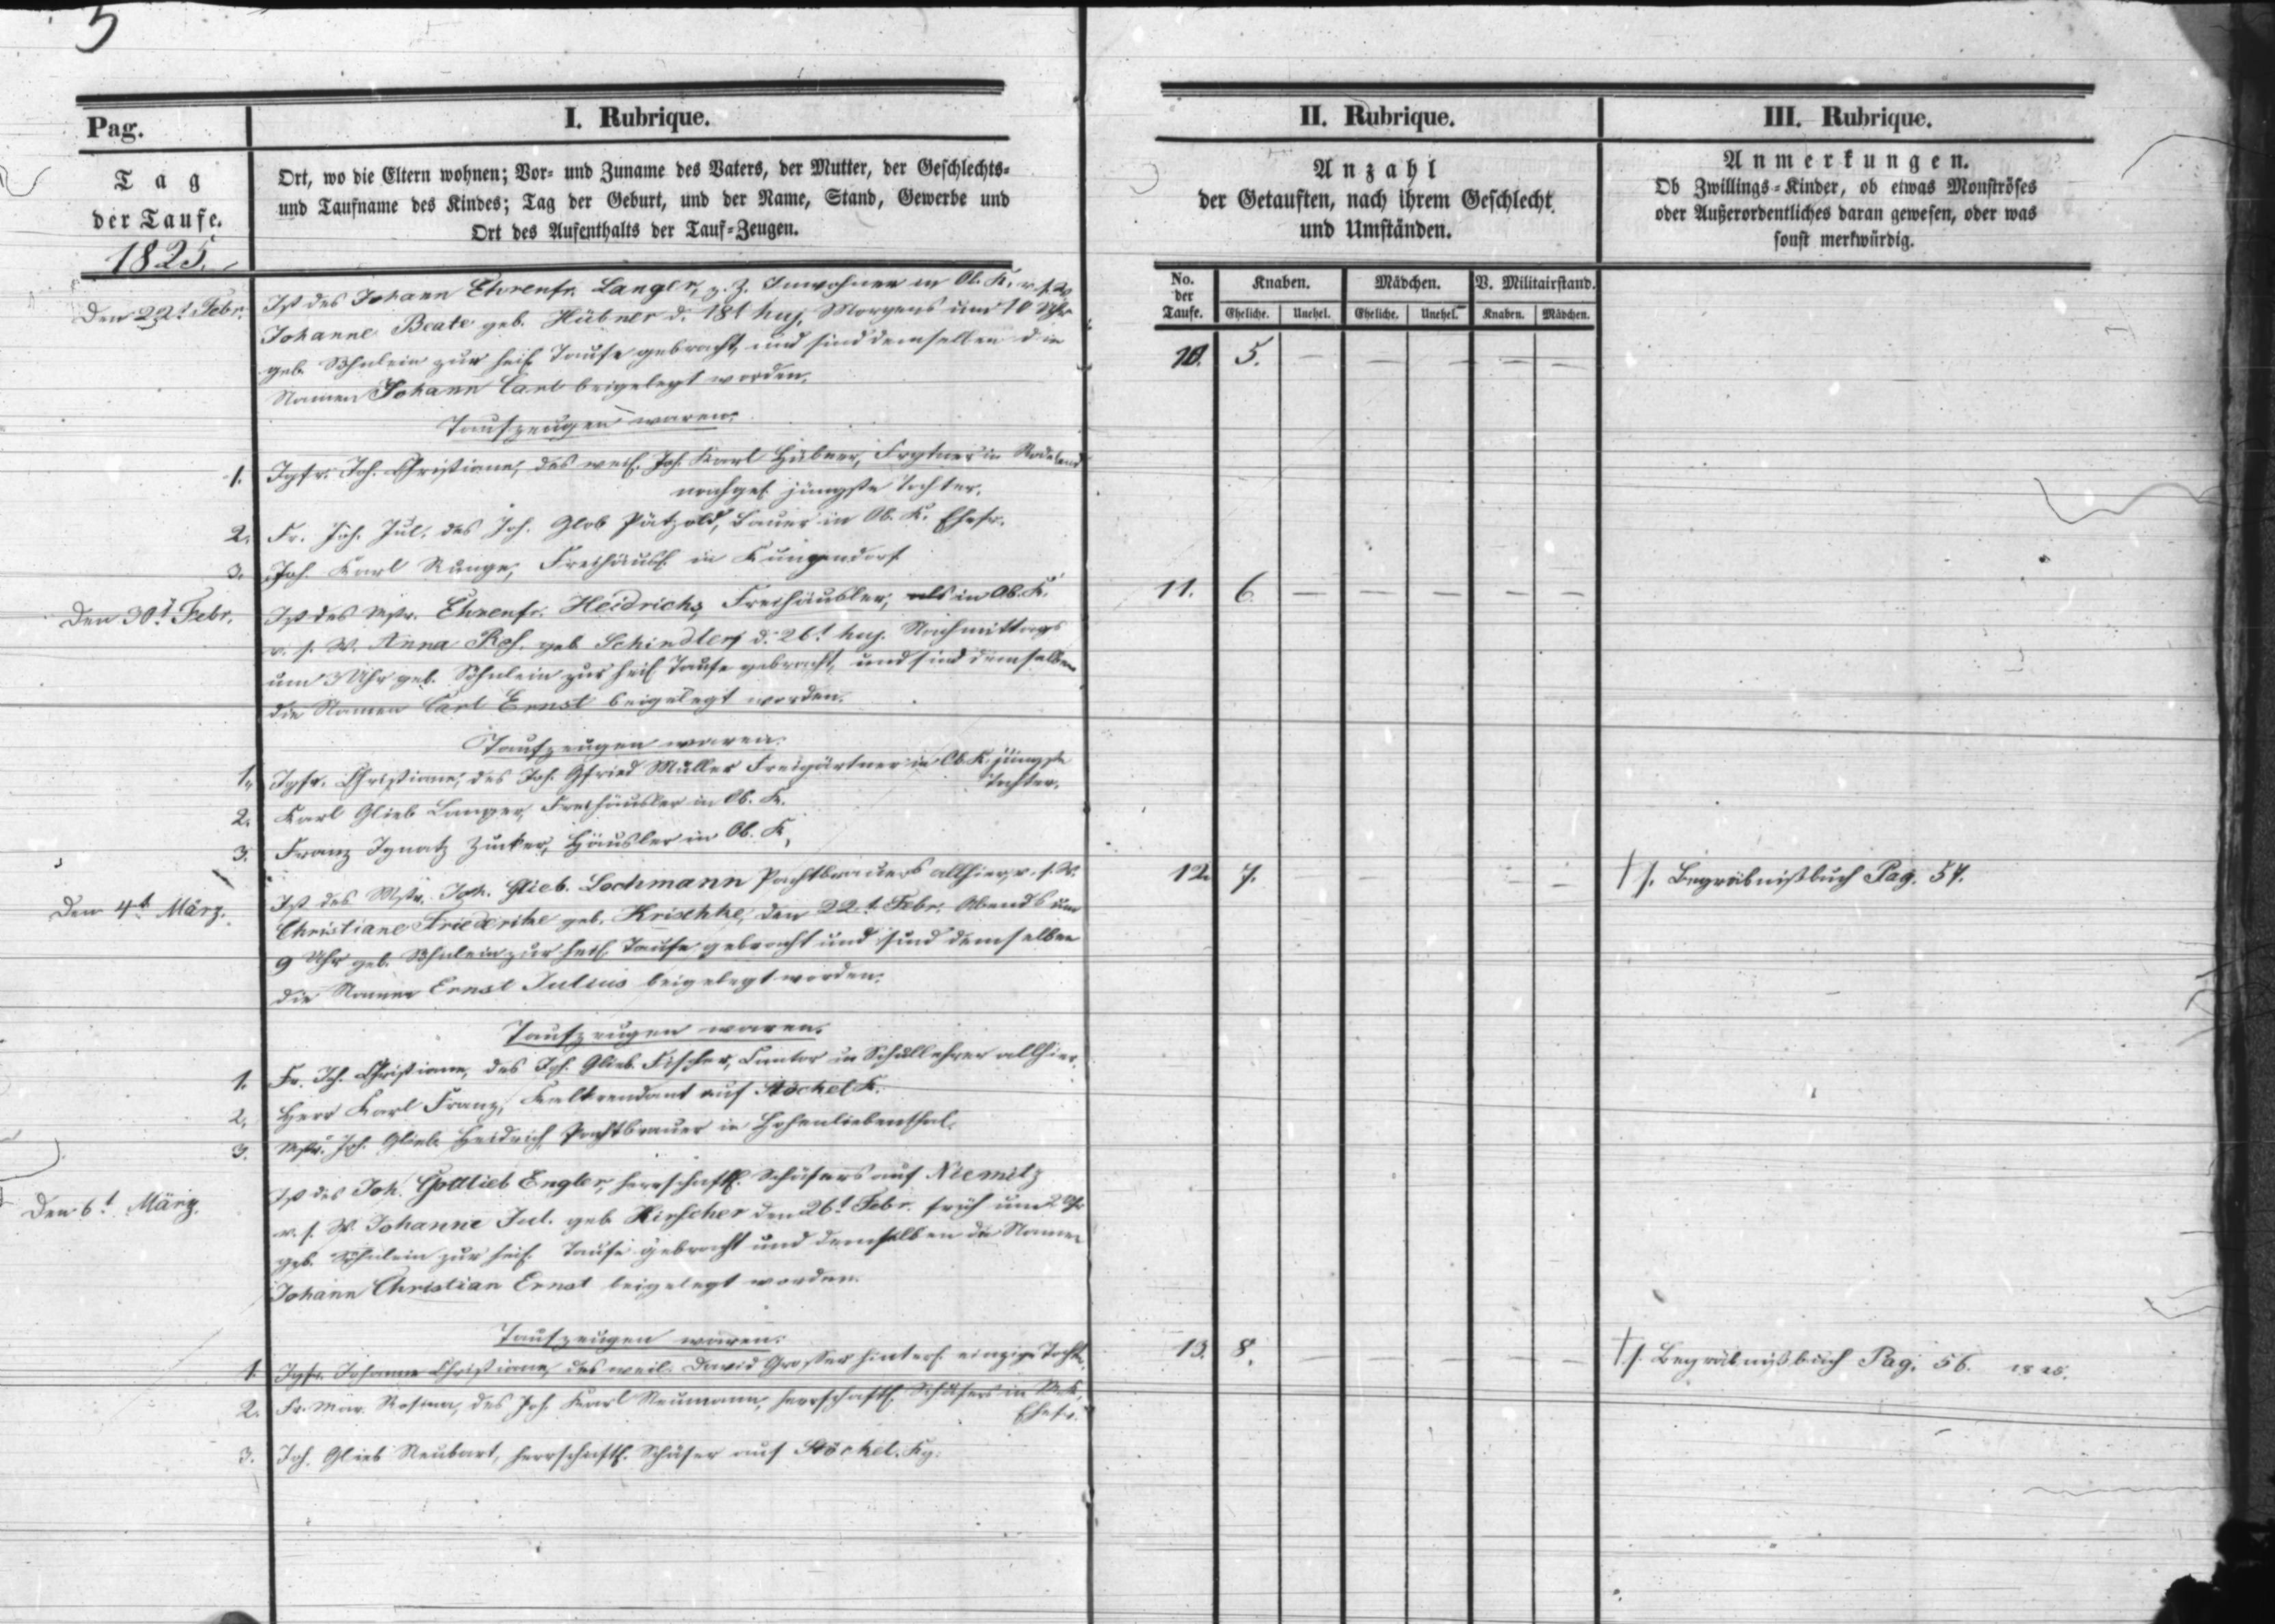 5
Pag.
I. Rubrique.
II. Rubrique.
III. Rubrique.
Tag
der Taufe.
1825.
Ort, wo die Eltern wohnen; Vor- und Zuname des Vaters, der Mutter, der Geschlechts-
und Taufname des Kindes; Tag der Geburt, und der Name, Stand, Gewerbe und
Ort des Aufenthalts der Tauf-Zeugen.
Anzahl
der Getauften, nach ihrem Geschlecht
und Umständen.
Anmerkungen.
Ob Zwillings-Kinder, ob etwas Monströses
oder Außerordentliches daran gewesen, oder was
sonst merkwürdig.
No. der Taufe.
Knaben. Mädchen. V. Militairstand.
Eheliche. Unehel. Eheliche. Unehel. Knaben. Mädchen.
Den 22t Febr. Ist des Johann Ehrenfr. Langer, z. Z. Inwohner in Ob. K. v. s. W.
Johanne Beate geb. Hübner d. 18t huj. Morgens um 10 Uhr
geb. Söhnlein zur heil. Taufe gebracht, und sind demselben die
Namen Johann Carl beigelegt worden.
10. 5. — — — — —
Taufzeugen waren:
1. Jgfr. Joh. Christiane, des weil. Joh. Karl Hübner, in
nachgel. jüngste Tochter.
2. Fr. Joh. Jul. des Joh. Glob Pätzold, Bauer in Ob. K. Ehefr.
3. Joh. Karl Runge, Freihäusl. in Kunzendorf
Den 30t Febr. Ist des Mstr. Ehrenfr. Heidrich, Freihäusler, in Ob. K.
v. s. W. Anna Ros. geb. Schindler d. 26t huj. Nachmittags
um 3 Uhr geb. Söhnlein zur heil. Taufe gebracht, und sind demselben
die Namen Carl Ernst beigelegt worden.
11. 6. — — — — —
Taufzeugen waren:
1. Jgfr. Christiane, des Joh. Gfried Müller Freigärtner in Ob. K. jüngste
Tochter.
2. Karl Glieb Langer, Freihäusler in Ob. K.
3. Franz Ignatz Zinker, Häusler in Ob. K.
Den 4t März. Ist des Mstr. Joh. Glieb. Lochmann Pachtbrauers allhier, v. s. W.
Christiane Friederike geb. Krischke, den 22t Febr. Abends um
9 Uhr geb. Söhnlein zur heil. Taufe gebracht und sind demselben
die Namen Ernst Julius beigelegt worden.
12. 7. — — — — —
† s. Begräbnißbuch Pag. 57.
Taufzeugen waren.
1. Fr. Joh. Christiane, des Joh. Glieb. Fischer, Cantor u Schullehrer allhier.
2. Herr Karl Franz, auf Stöchel K.
3. Mstr. Joh. Glieb. Heidrich Pachtbrauer in Hohenliebenthal.
Den 6t März. Ist des Joh. Gottlieb Engler, herrschaftl. Schäfers auf Niemitz
v. s. W. Johanne Jul. geb. Hirscher den 26t Febr. früh um 2 Uhr
geb. Söhnlein zur heil. Taufe gebracht und demselben die Namen
Johann Christian Ernst beigelegt worden.
Taufzeugen waren:
13. 8. — — — — —
† s. Begräbnißbuch Pag. 56. 1825.
1. Jgfr. Johanne Christiane, des weil. David Grosser hinterl. einzige Tocht.
2. Fr. Mar. Rosina, des Joh. Karl Neumann, herrschaftl. Schäfers in
Ehefr.
3. Joh. Glieb Neubart, herrschaftl. Schäfer auf Stöchel. Kz.